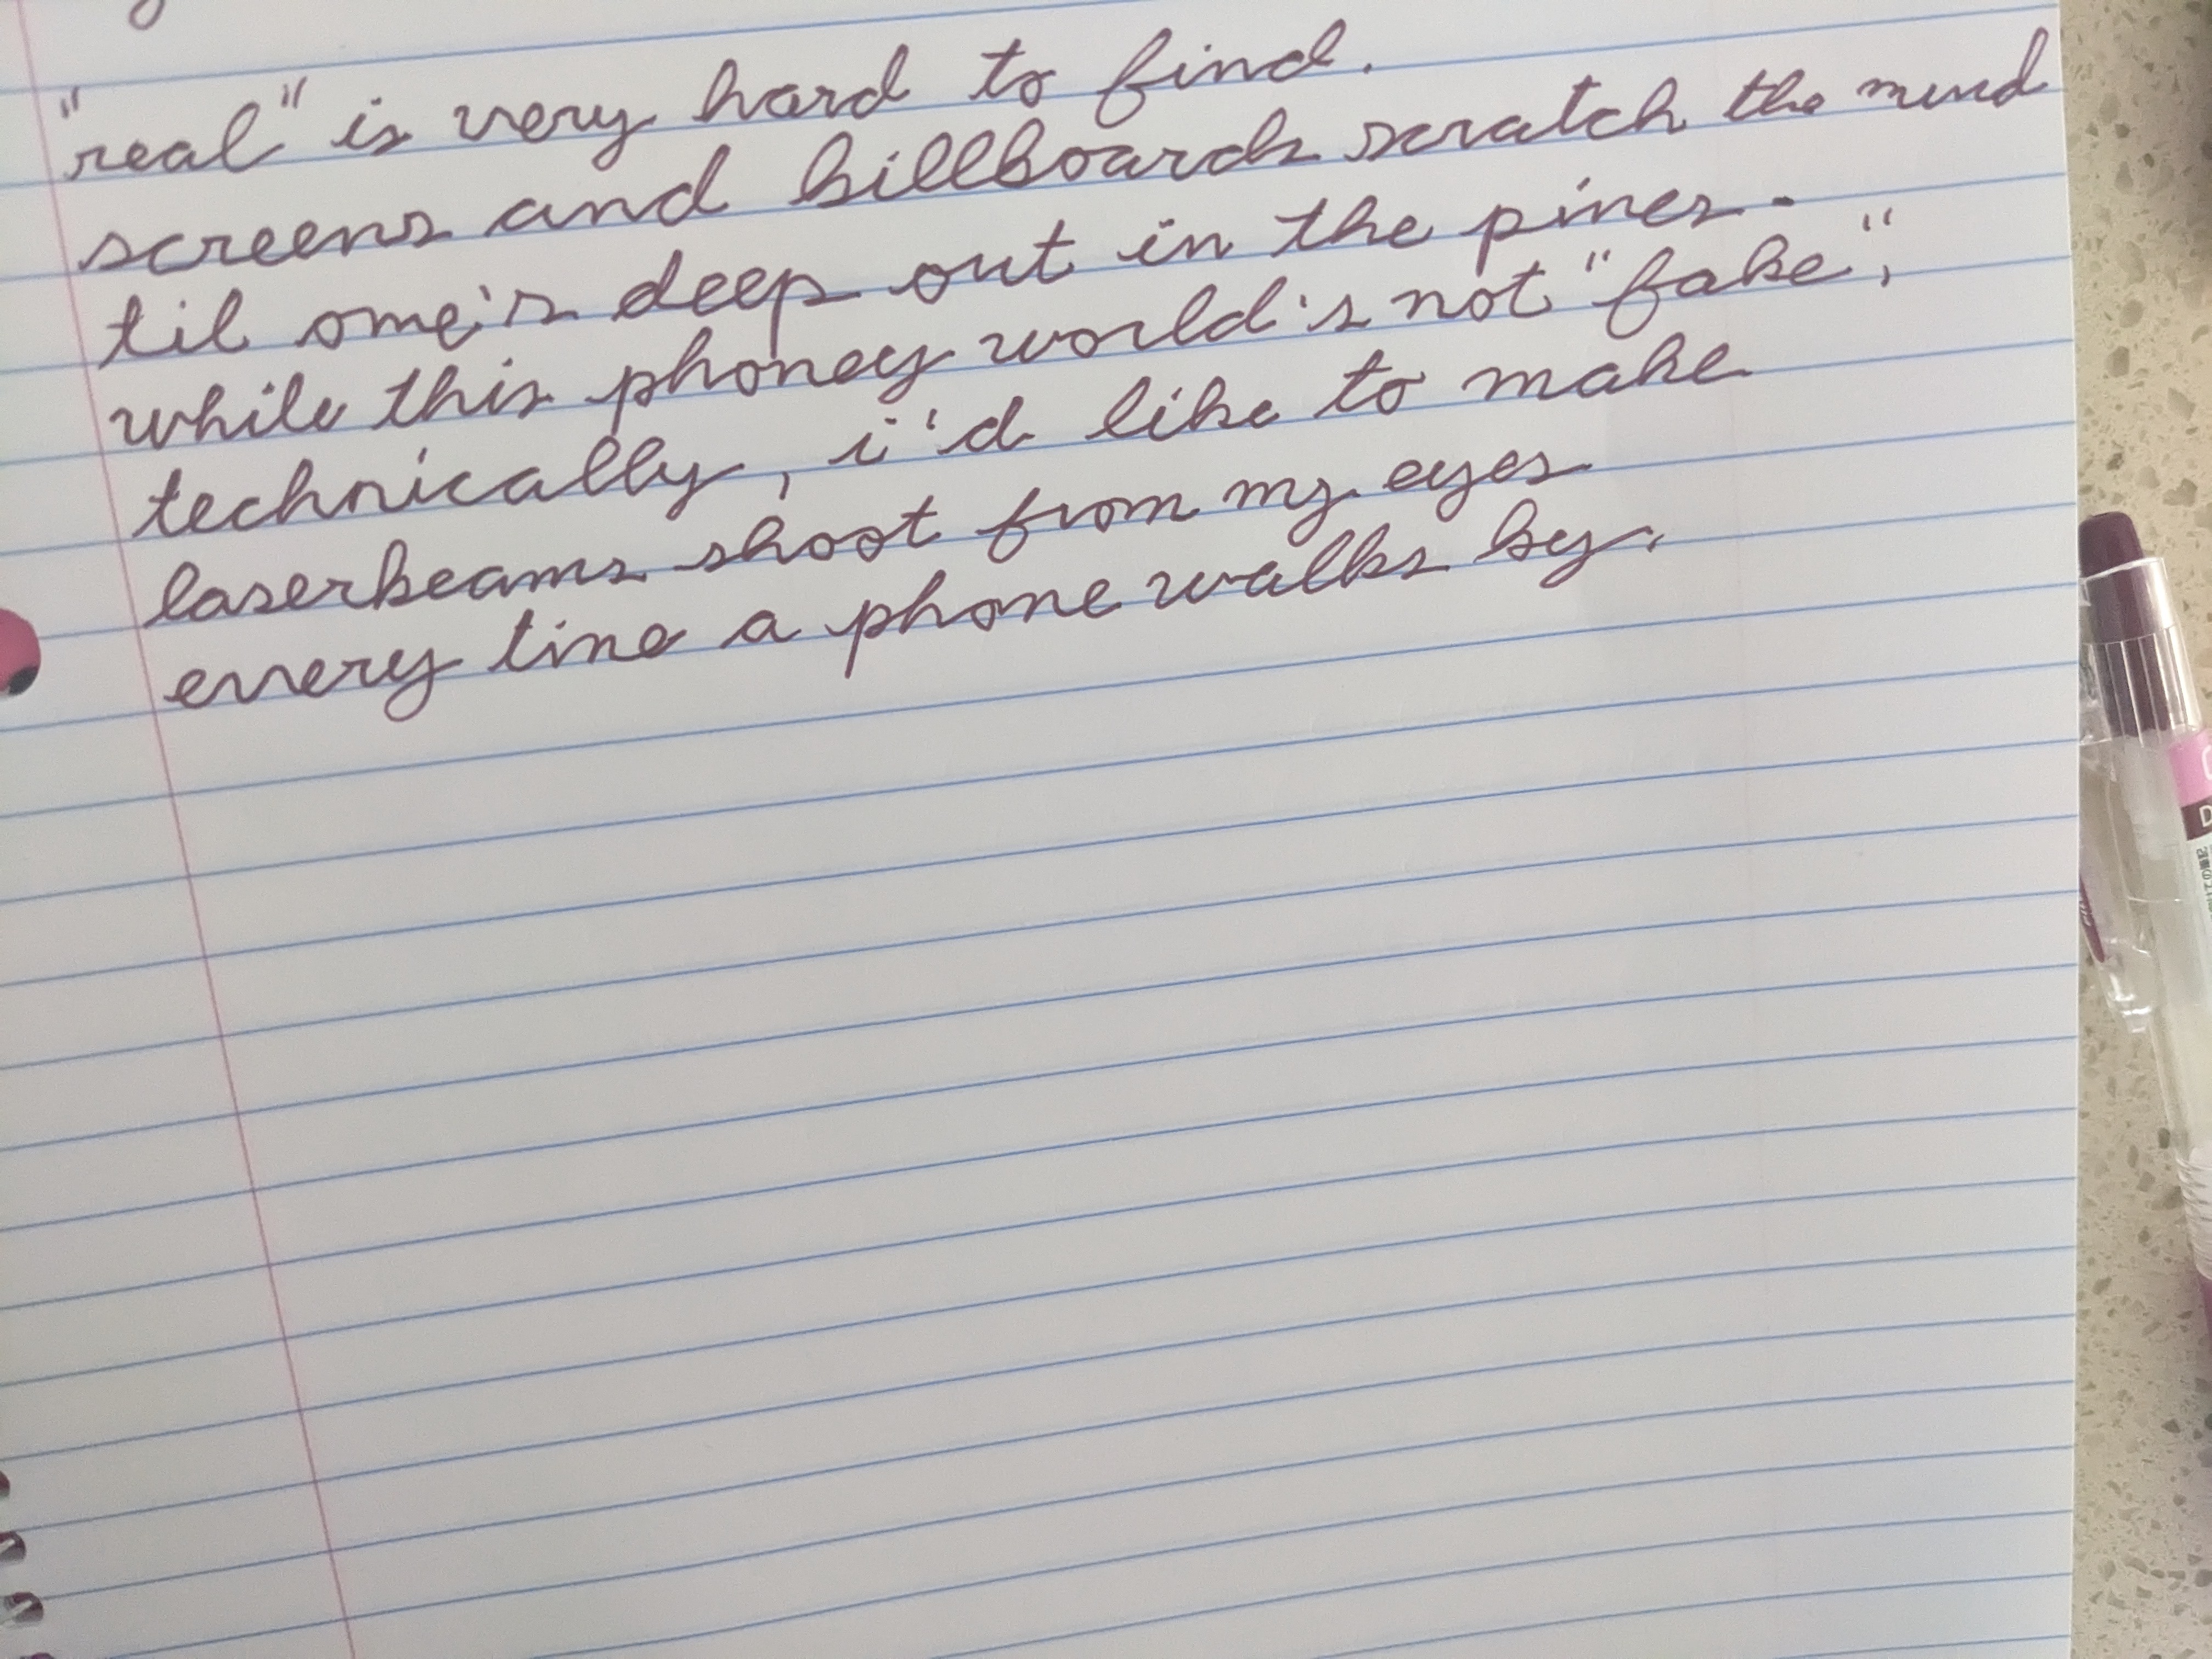 "real" is very hard to find.
screens and billboards scratch the mind
til one's deep out in the pines.
while this phoney world's not "fake",
technically, i'd like to make
laserbeams shoot from my eyes
every time a phone walks by.